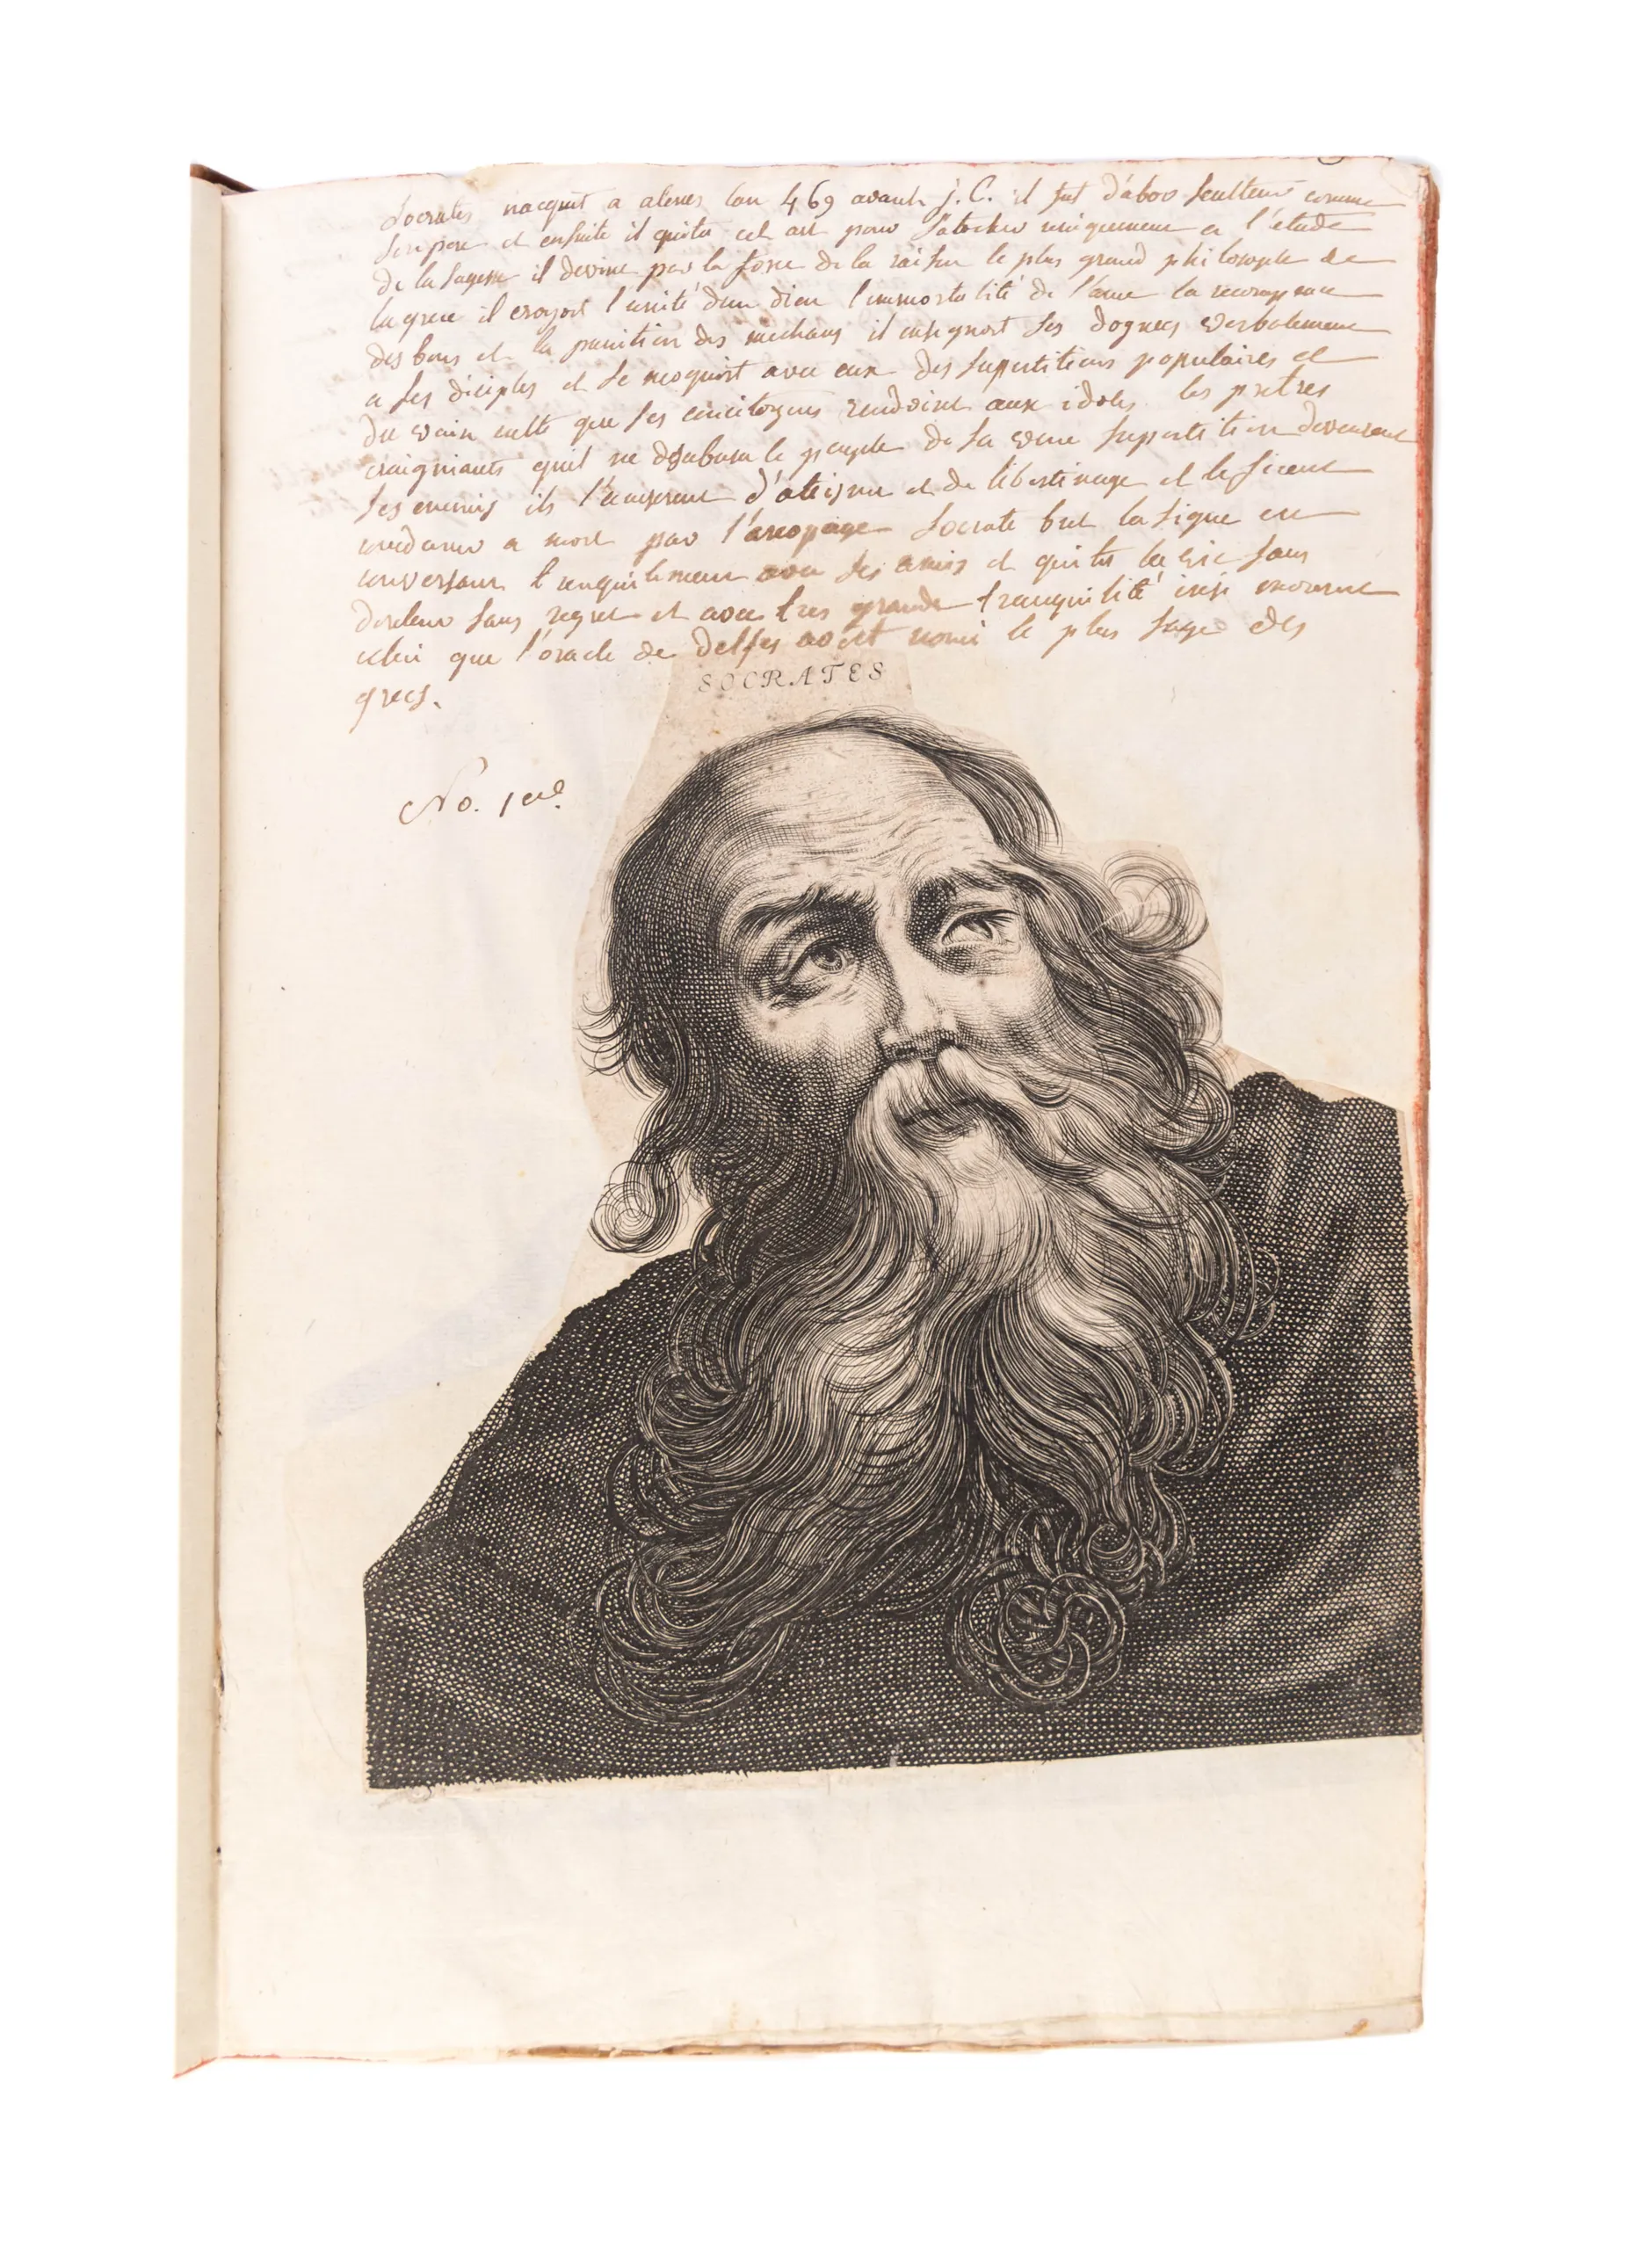 Socrates nacquit a atenes lan 469 avant j. C. il fut d'abor sculteur comme
son pere et ensuite il quita cet art pour s'atacher uniquement a l'étude
de la sagesse il devint par la force de la raison le plus grand philosophe de
la grece il croyoit l'unité d'un dieu l'immortalité de l'ame la recompense
des bons et la punition des mechans il enseignoit ses dogmes verbalement
a ses diciples et se moquoit avec eux des superstitions populaires et
du vain culte que ses concitoyens rendoint aux idoles les pretres
craigniants quil ne desabusa le peuple de sa vene superstition devenrent
ses enemis ils l'acuserent d'ateisme et de libertinage et le firent
condamner a mort par l'areopage Socrate but la sigue en
conversant tranquilement avec ses amis et quita la vie sans
douleur sans regret et avec tres grande tranquilité insi mourut
celui que l'oracle de delfes avoit nomé le plus sage des
grecs.
SOCRATES
No. 1er